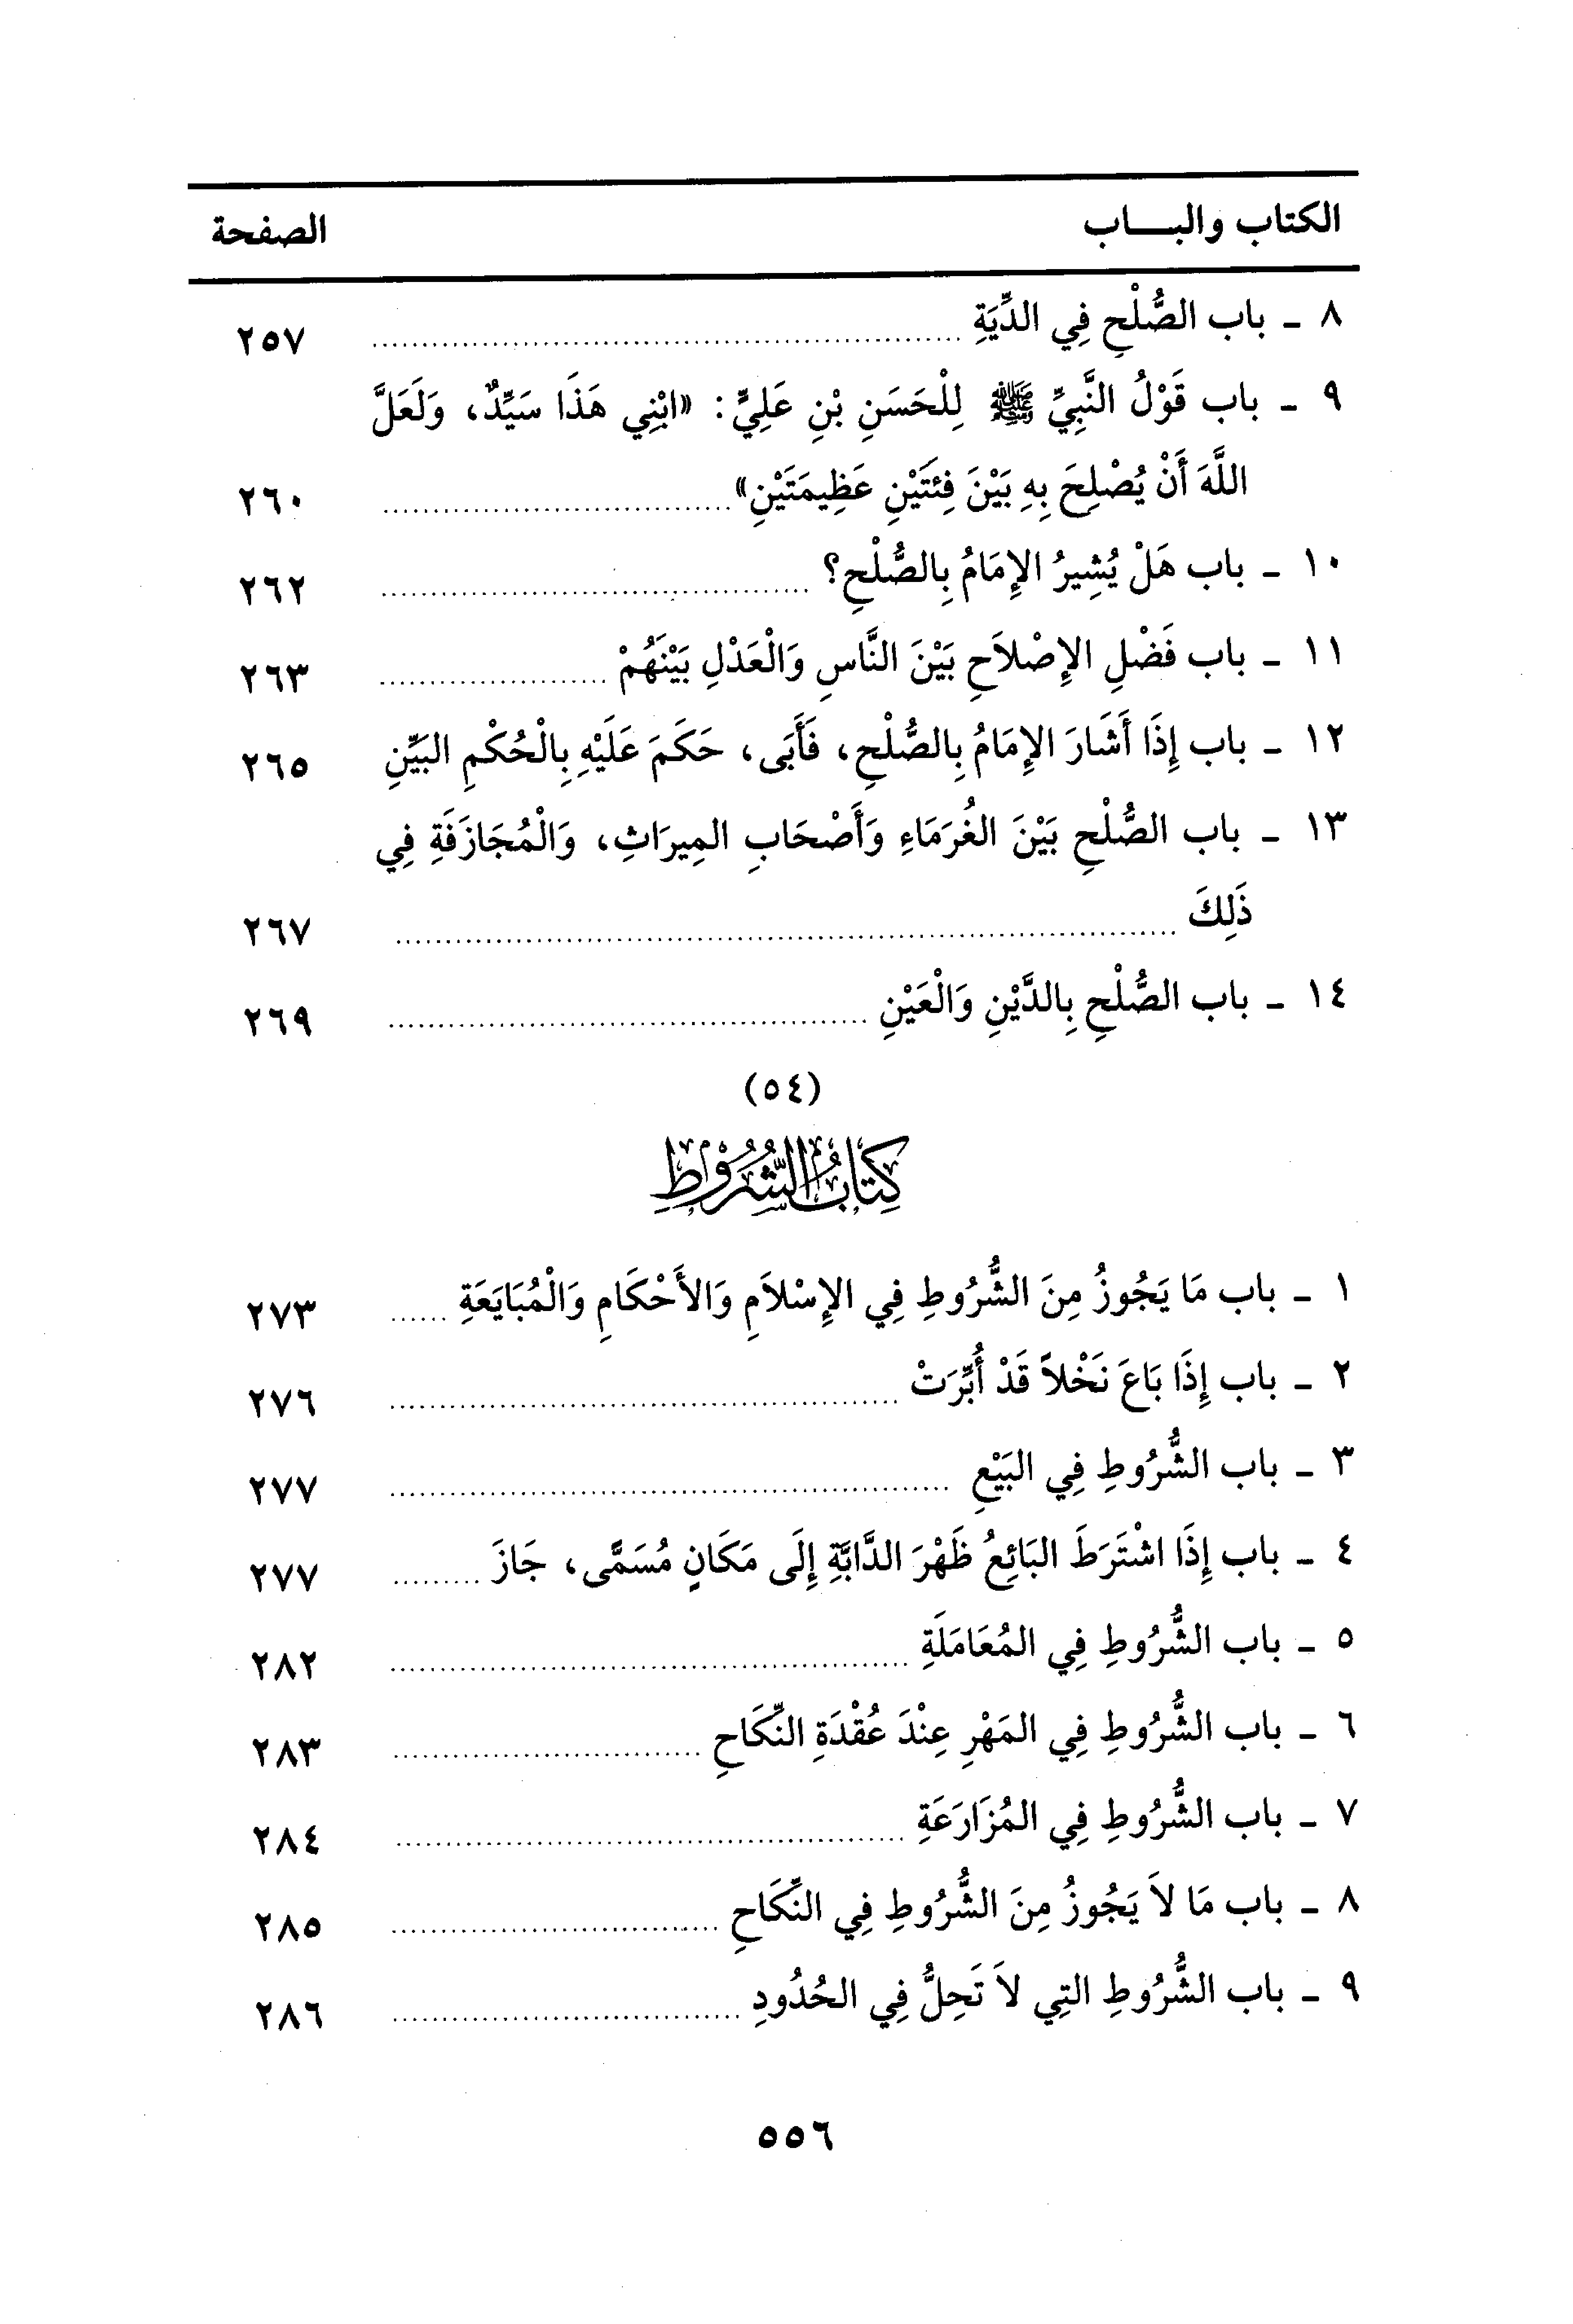 الكتاب والبـــاب الصفحة
٨ ـ باب الصُّلْحِ فِي الدِّيَةِ ........ ٢٥٧
٩ ـ باب قَوْلُ النَّبِيِّ ﷺ لِلْحَسَنِ بْنِ عَلِيٍّ: «ابْنِي هَذَا سَيِّدٌ، وَلَعَلَّ
اللَّهَ أَنْ يُصْلِحَ بِهِ بَيْنَ فِئَتَيْنِ عَظِيمَتَيْنِ» ........ ٢٦٠
١٠ ـ باب هَلْ يُشِيرُ الإِمَامُ بِالصُّلْحِ؟ ........ ٢٦٢
١١ ـ باب فَضْلِ الإِصْلاَحِ بَيْنَ النَّاسِ وَالْعَدْلِ بَيْنَهُمْ ........ ٢٦٣
١٢ ـ باب إِذَا أَشَارَ الإِمَامُ بِالصُّلْحِ، فَأَبَى، حَكَمَ عَلَيْهِ بِالْحُكْمِ البَيِّنِ ٢٦٥
١٣ ـ باب الصُّلْحِ بَيْنَ الغُرَمَاءِ وَأَصْحَابِ المِيرَاثِ، وَالْمُجَازَفَةِ فِي
ذَلِكَ ........ ٢٦٧
١٤ ـ باب الصُّلْحِ بِالدَّيْنِ وَالْعَيْنِ ........ ٢٦٩
(٥٤)
كِتَابُ الشُّرُوطِ
١ ـ باب مَا يَجُوزُ مِنَ الشُّرُوطِ فِي الإِسْلاَمِ وَالأَحْكَامِ وَالْمُبَايَعَةِ ...... ٢٧٣
٢ ـ باب إِذَا بَاعَ نَخْلاً قَدْ أُبِّرَتْ ........ ٢٧٦
٣ ـ باب الشُّرُوطِ فِي البَيْعِ ........ ٢٧٧
٤ ـ باب إِذَا اشْتَرَطَ البَائِعُ ظَهْرَ الدَّابَّةِ إِلَى مَكَانٍ مُسَمًّى، جَازَ ........ ٢٧٧
٥ ـ باب الشُّرُوطِ فِي المُعَامَلَةِ ........ ٢٨٢
٦ ـ باب الشُّرُوطِ فِي المَهْرِ عِنْدَ عُقْدَةِ النِّكَاحِ ........ ٢٨٣
٧ ـ باب الشُّرُوطِ فِي المُزَارَعَةِ ........ ٢٨٤
٨ ـ باب مَا لاَ يَجُوزُ مِنَ الشُّرُوطِ فِي النِّكَاحِ ........ ٢٨٥
٩ ـ باب الشُّرُوطِ التِي لاَ تَحِلُّ فِي الحُدُودِ ........ ٢٨٦
٥٥٦